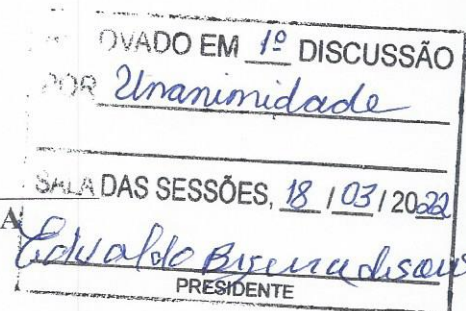 OVADO EM 1º DISCUSSÃO
POR Unanimidade
SALA DAS SESSÕES, 18 / 03 / 2022
A
Edvaldo
PRESIDENTE